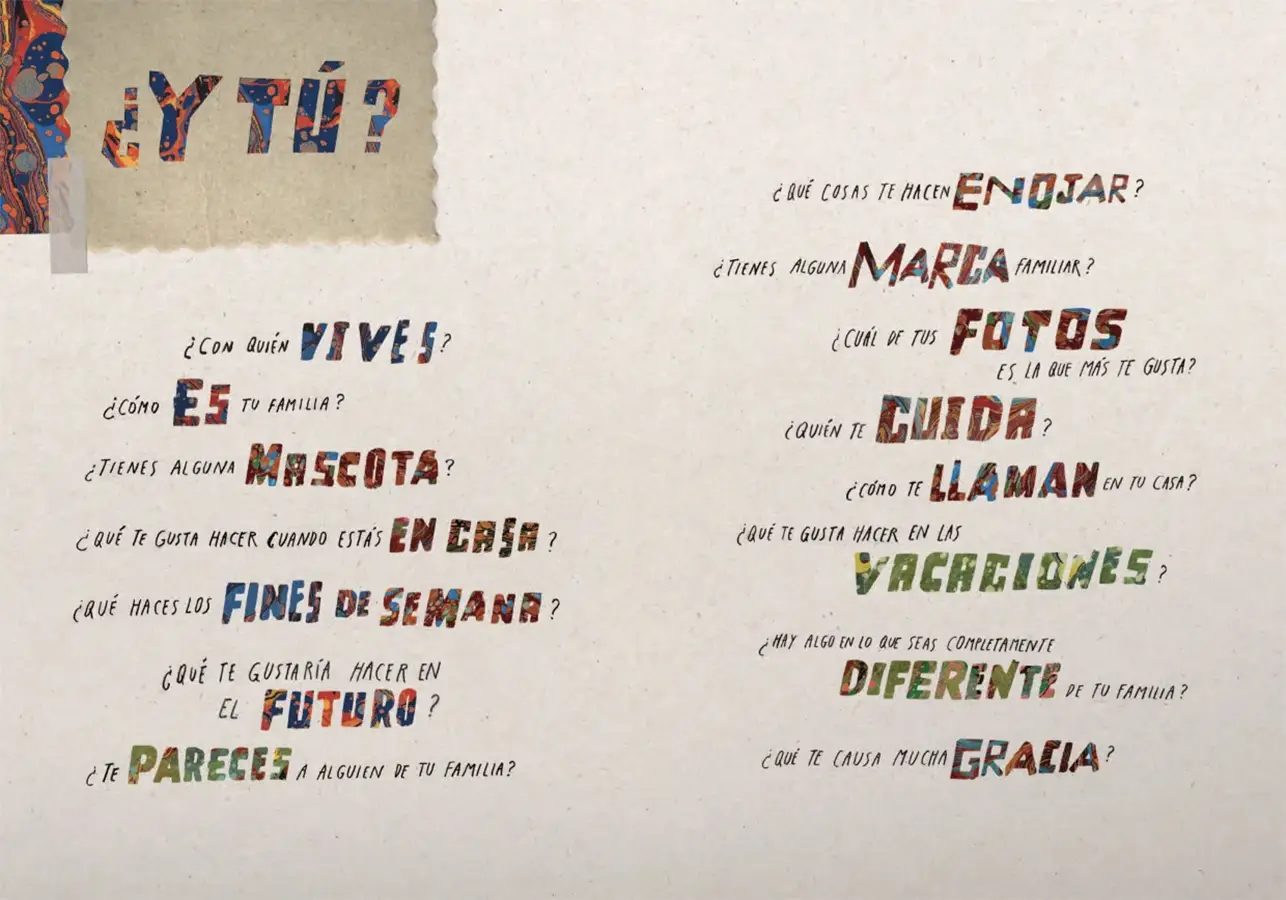 ¿Y TÚ?
¿CON QUIÉN VIVES?
¿CÓMO ES TU FAMILIA?
¿TIENES ALGUNA MASCOTA?
¿QUÉ TE GUSTA HACER CUANDO ESTÁS EN CASA?
¿QUÉ HACES LOS FINES DE SEMANA?
¿QUÉ TE GUSTARÍA HACER EN
EL FUTURO?
¿TE PARECES A ALGUIEN DE TU FAMILIA?
¿QUÉ COSAS TE HACEN ENOJAR?
¿TIENES ALGUNA MARCA FAMILIAR?
¿CUÁL DE TUS FOTOS
ES LA QUE MÁS TE GUSTA?
¿QUIÉN TE CUIDA?
¿CÓMO TE LLAMAN EN TU CASA?
¿QUÉ TE GUSTA HACER EN LAS
VACACIONES?
¿HAY ALGO EN LO QUE SEAS COMPLETAMENTE
DIFERENTE DE TU FAMILIA?
¿QUÉ TE CAUSA MUCHA GRACIA?